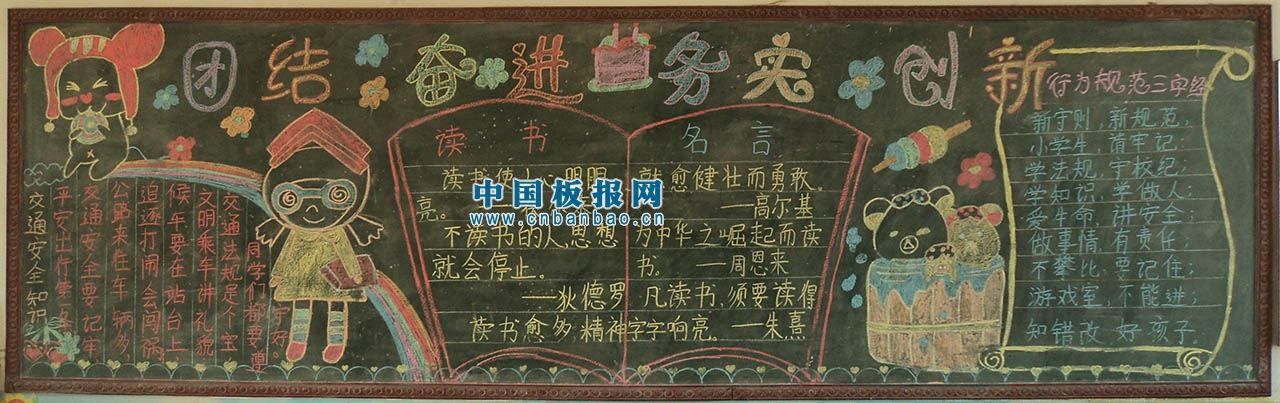 团结奋进务实创新
交通安全知识
平安出行第一条
交通安全要记牢
公路来往车辆多,
追逐打闹会闯祸
候车要在站台上
文明乘车讲礼貌
交通法规是个宝
同学们都要遵
守好。
读书
读书使人
亮。
不读书的人,思想
就会停止。
——狄德罗
读书愈多,精神
名言
就愈健壮而勇敢。
——高尔基
为中华之崛起而读
书。 ——周恩来
凡读书,须要读得
字字响亮。——朱熹
行为规范三字经
新守则,新规范,
小学生,请牢记:
学法规,守校纪;
学知识,学做人;
爱生命,讲安全;
做事情,有责任;
不攀比,要记住;
游戏室,不能进;
知错改,好孩子。
中国板报网
www.cnbanbao.cn